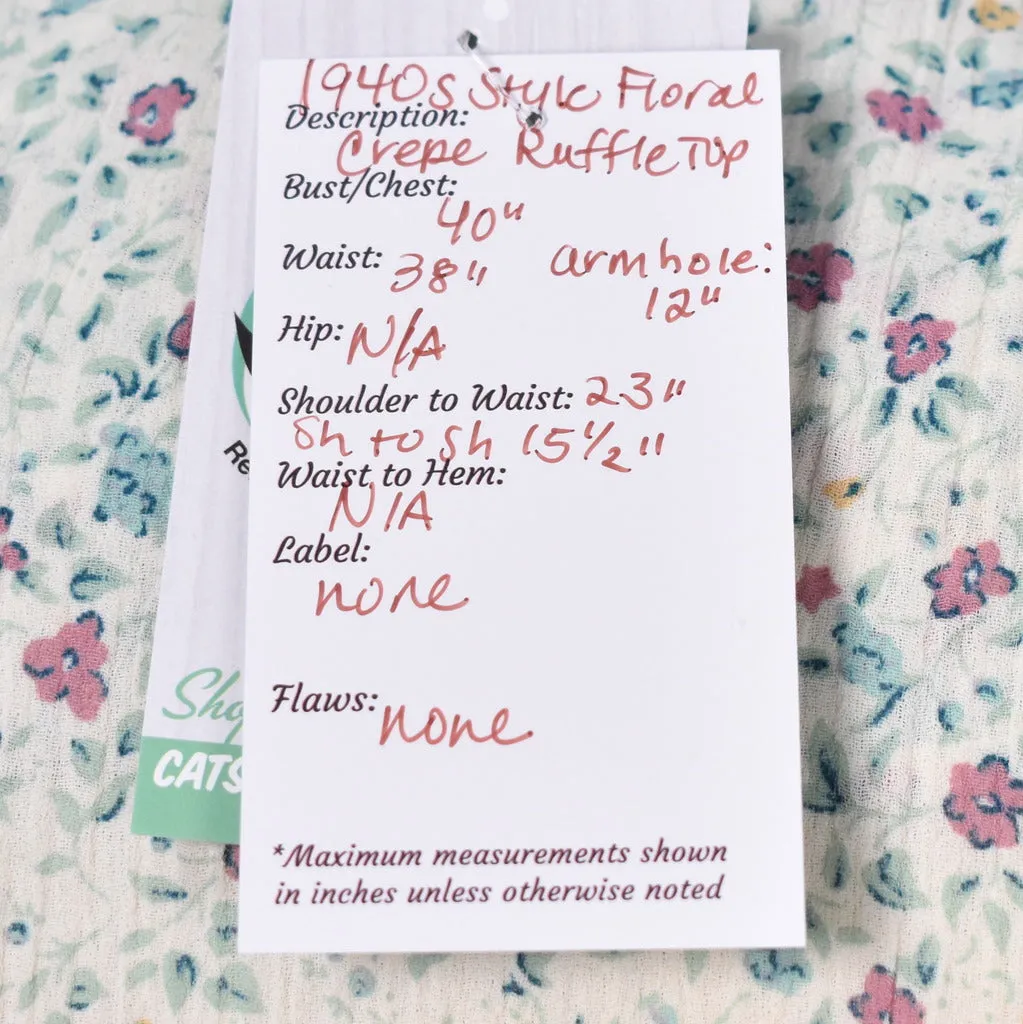 1940s Style Floral
Description:
Crepe Ruffle Top
Bust/Chest:
40"
Waist: 38" armhole:
12"
Hip: N/A
Shoulder to Waist: 23"
Sh to Sh 15 1/2"
Waist to Hem:
N/A
Label:
none
Flaws: none
*Maximum measurements shown
in inches unless otherwise noted
Re
Sho
CATS